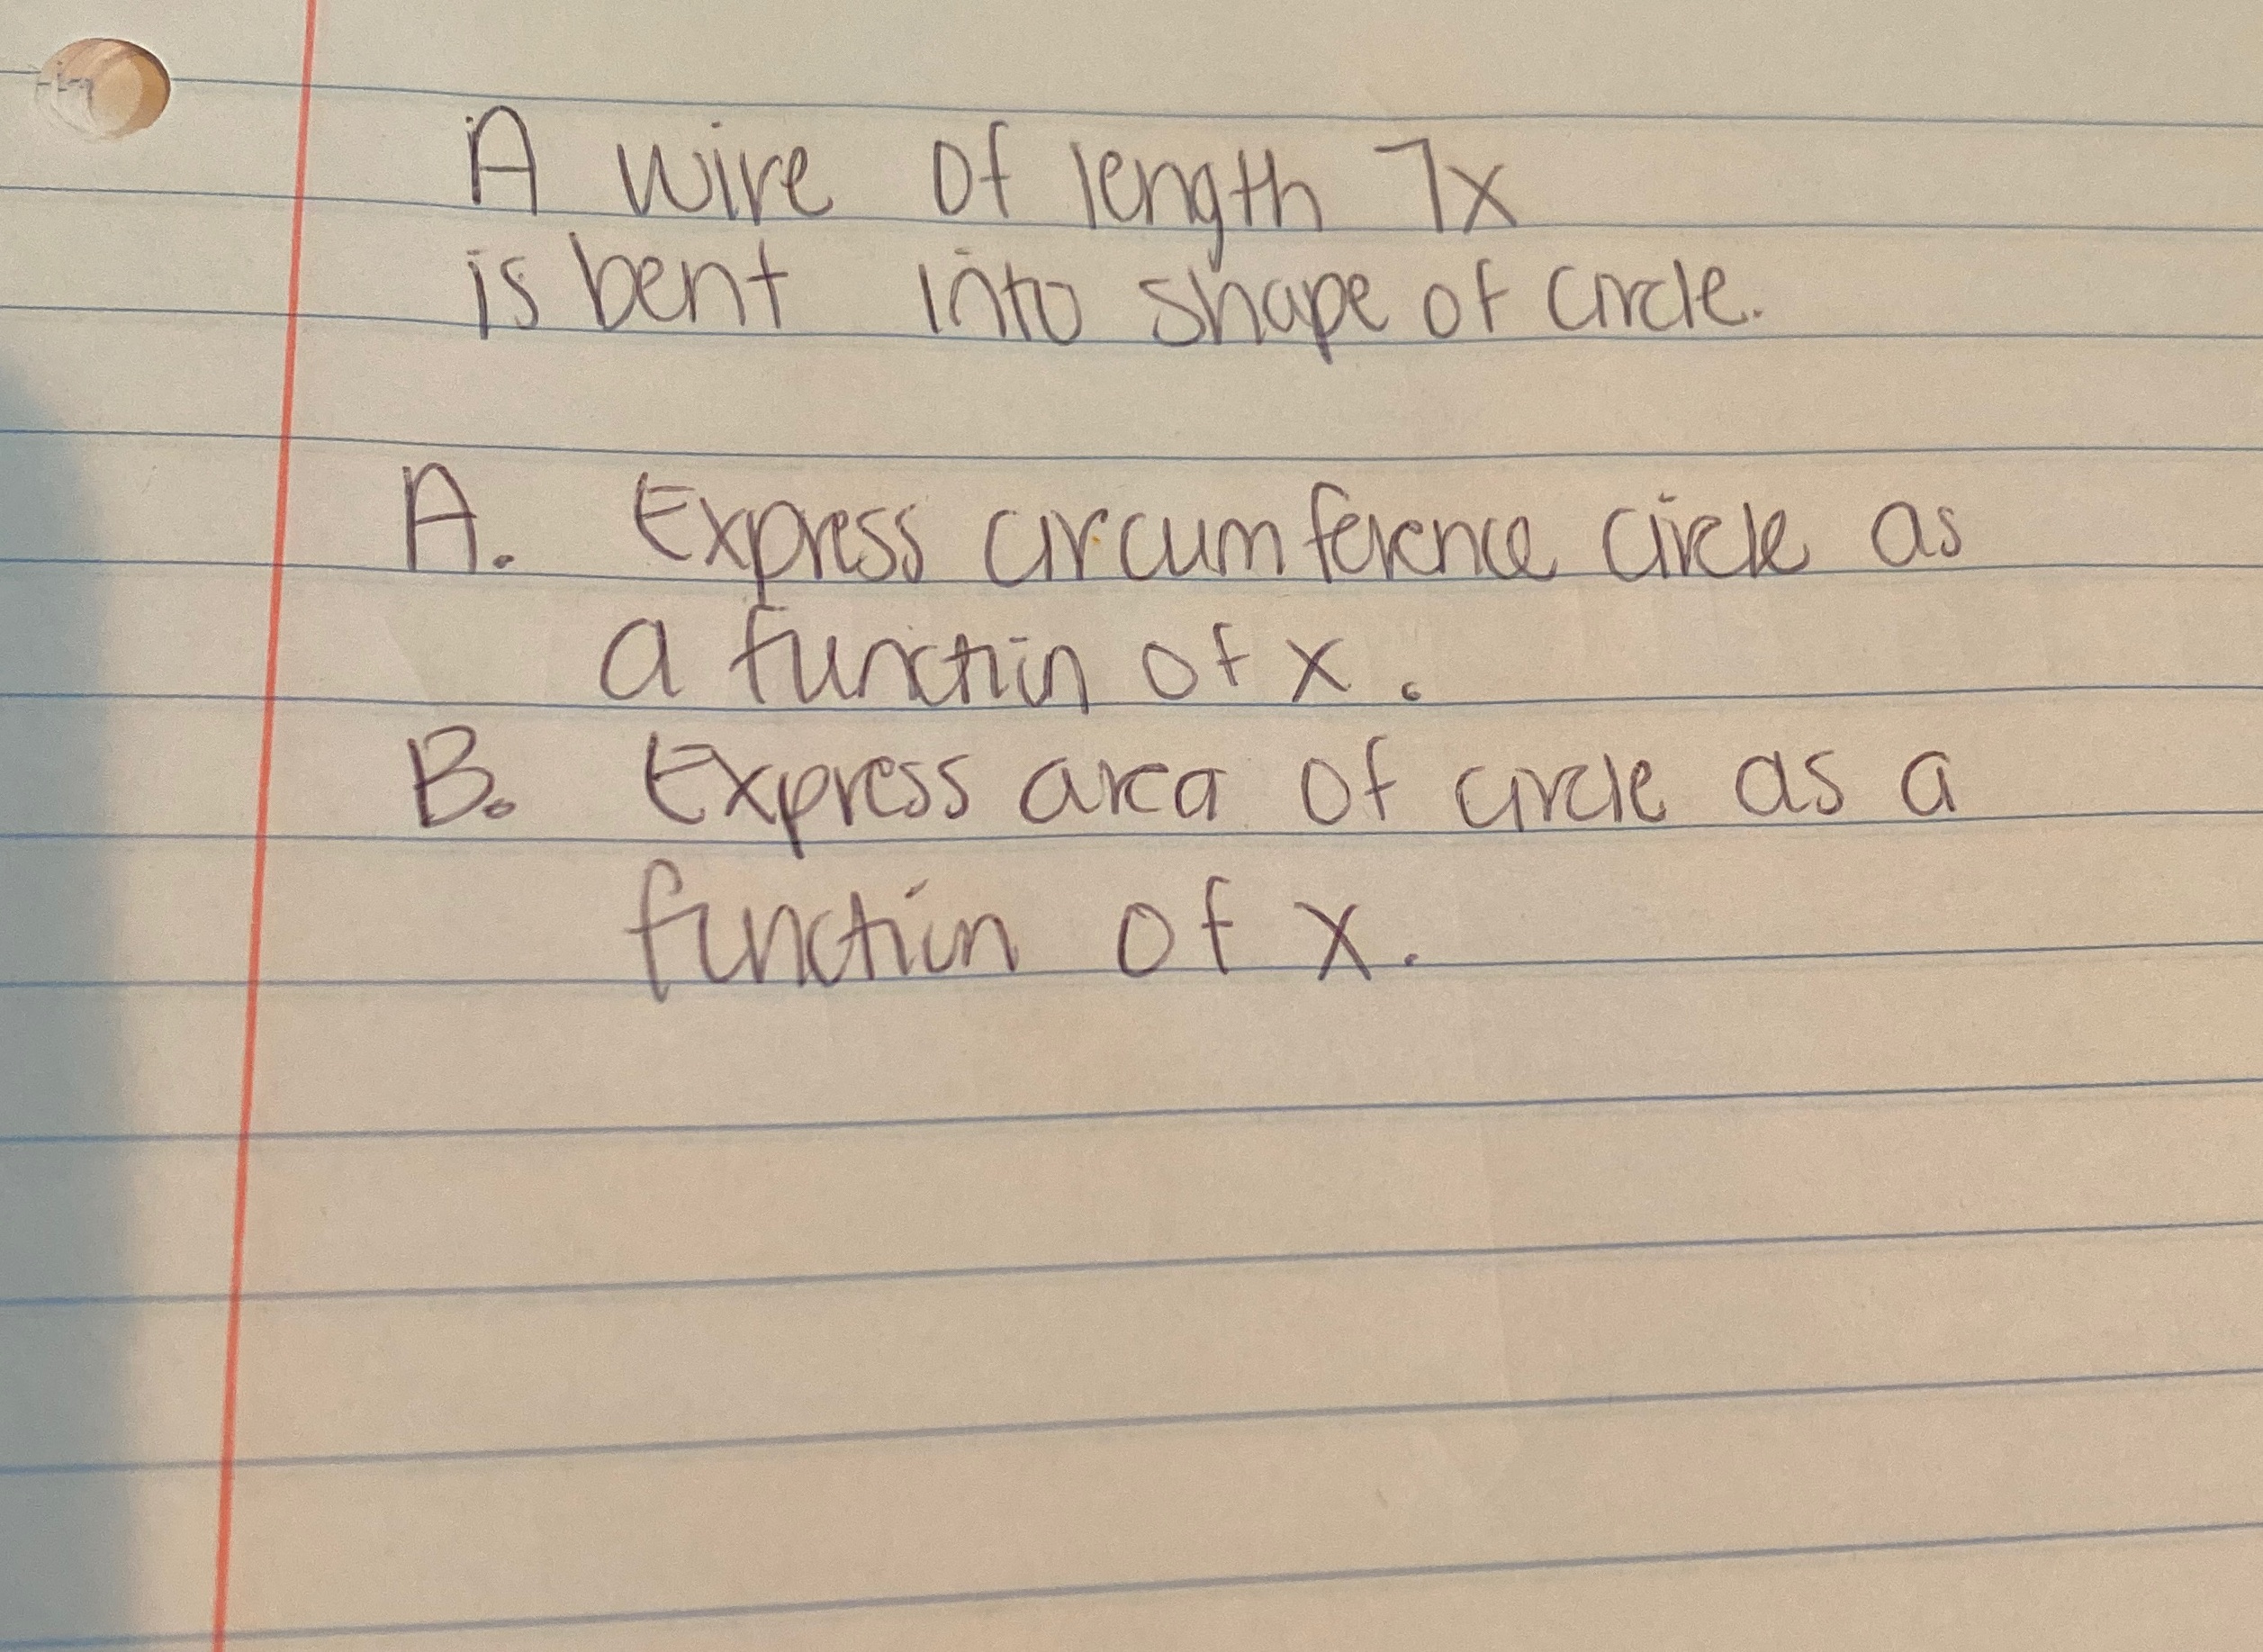 A wire of length 7x
is bent into shape of circle.
A. Express circumference circle as
a function of x.
B. Express area of circle as a
function of x.